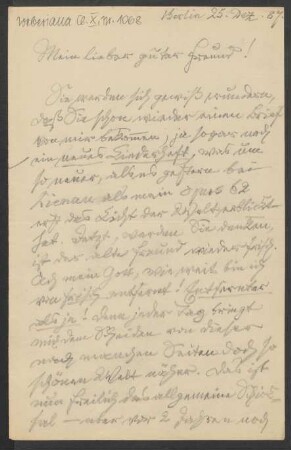 Weberiana Cl. X, N. 1068
Berlin 25. Dez. 67.
Mein lieber guter Freund!
Sie werden sich gewiß wundern,
daß Sie schon wieder einen Brief
von mir bekommen, ja sogar noch
ein neues Liederheft, was um
so neuer, als es gestern bei
als mein Opus 62
erst das Licht der Welt erblickt
hat. Jetzt, werden Sie denken,
ist der alte Freund wieder frisch.
Ach mein Gott, wie weit bin ich
von frisch entfernt! Entfernter
als je! denn jeder Tag bringt
mich dem Scheiden von dieser
nach manchen Seiten doch so
schönen Welt näher. Das ist
nun freilich das allgemeine Schick
sal — aber vor 2 Jahren noch